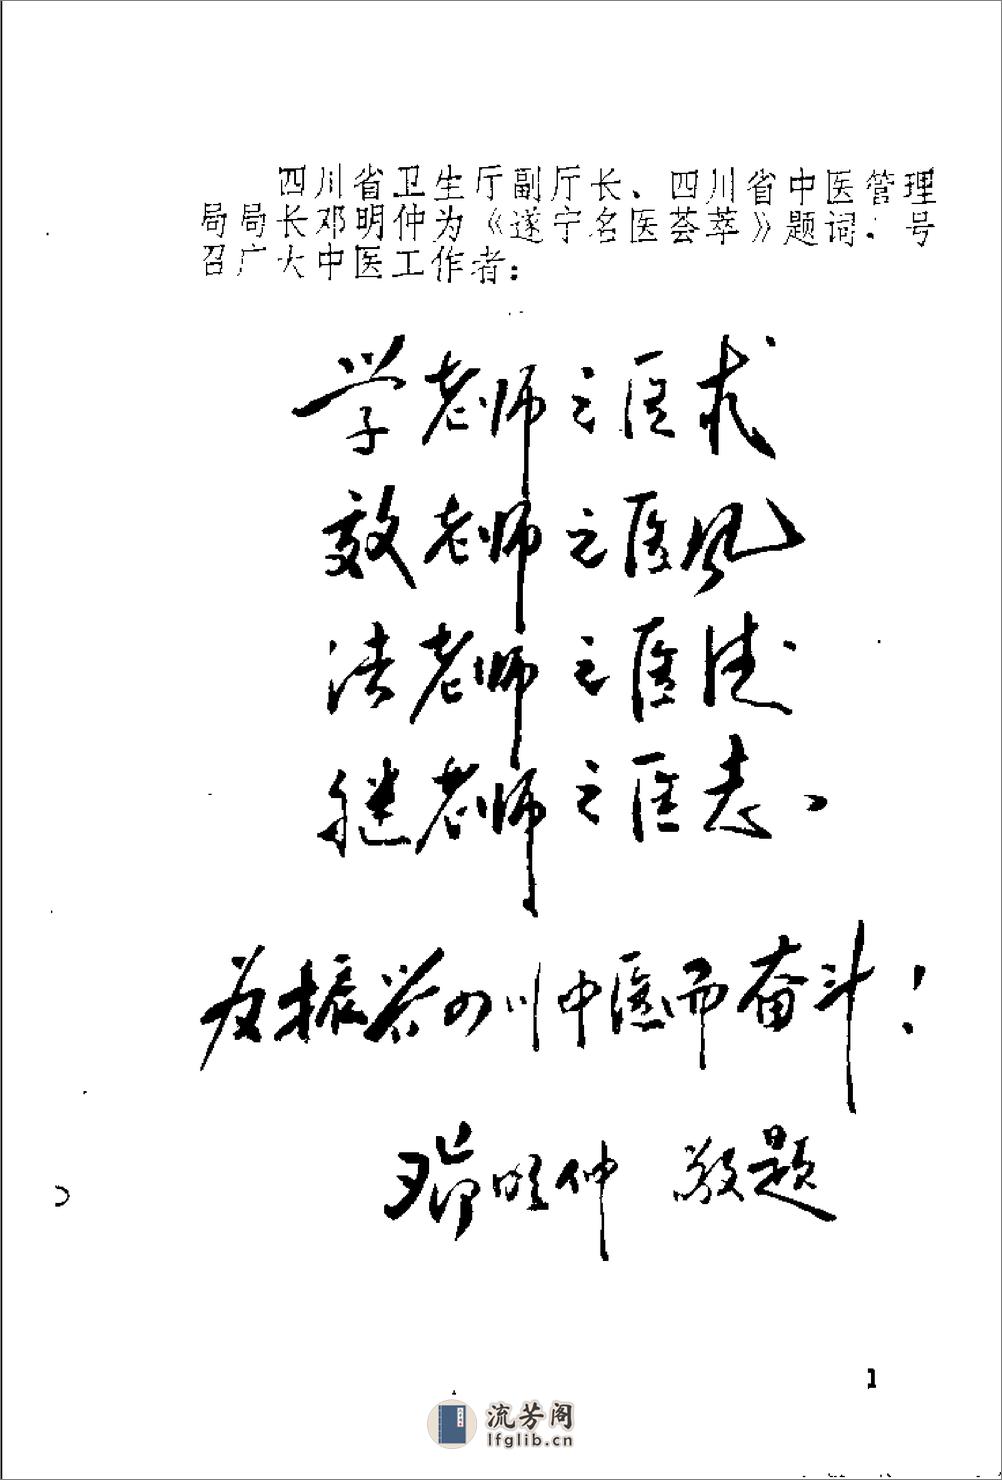 四川省卫生厅副厅长、四川省中医管理
局局长邓明仲为《遂宁名医荟萃》题词．号
召广大中医工作者：
学老师之医术
效老师之医风
法老师之医德
继老师之医志、
为振兴四川中医而奋斗！
邓明仲 敬题
1
流芳阁
lfglib.cn